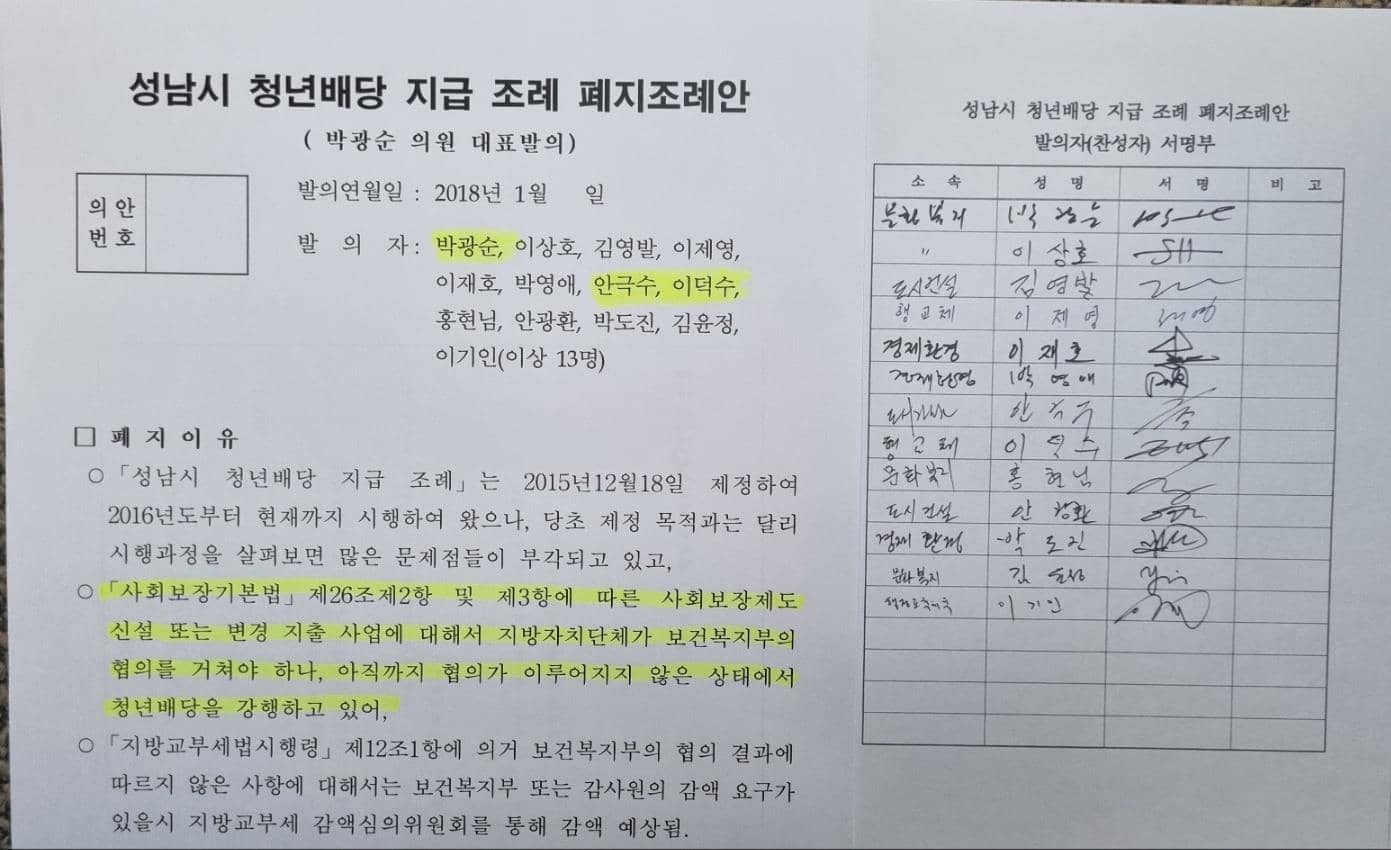 성남시 청년배당 지급 조례 폐지조례안
( 박광순 의원 대표발의)
의안
번호
발의연월일 : 2018년 1월 일
발 의 자 : 박광순, 이상호, 김영발, 이제영,
이재호, 박영애, 안극수, 이덕수,
홍현님, 안광환, 박도진, 김윤정,
이기인(이상 13명)
□ 폐 지 이 유
○ 「성남시 청년배당 지급 조례」는 2015년12월18일 제정하여
2016년도부터 현재까지 시행하여 왔으나, 당초 제정 목적과는 달리
시행과정을 살펴보면 많은 문제점들이 부각되고 있고,
○ 「사회보장기본법」제26조제2항 및 제3항에 따른 사회보장제도
신설 또는 변경 지출 사업에 대해서 지방자치단체가 보건복지부의
협의를 거쳐야 하나, 아직까지 협의가 이루어지지 않은 상태에서
청년배당을 강행하고 있어,
○ 「지방교부세법시행령」제12조1항에 의거 보건복지부의 협의 결과에
따르지 않은 사항에 대해서는 보건복지부 또는 감사원의 감액 요구가
있을시 지방교부세 감액심의위원회를 통해 감액 예상됨.
성남시 청년배당 지급 조례 폐지조례안
발의자(찬성자) 서명부
소 속 성 명 서 명 비 고
문화복지 박광순
〃 이상호 SH
도시건설 김영발
행교체 이제영 제영
경제환경 이재호
경제환경 박영애
도시건설 안극수
행교체 이덕수
문화복지 홍현님
도시건설 안광환
경제환경 박도진
문화복지 김윤정
이기인